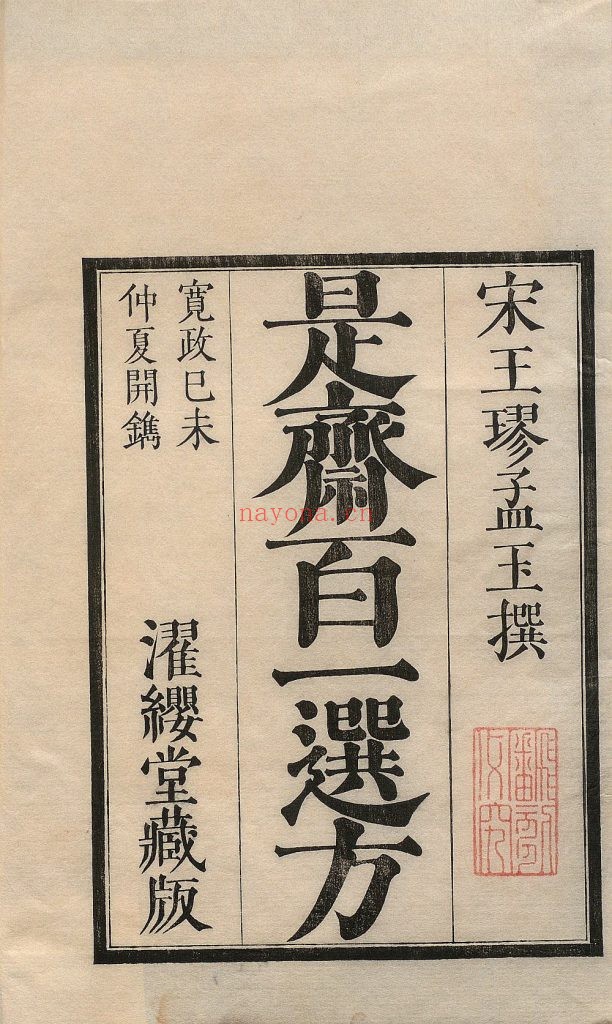 宋王璆孟玉撰
是齋百一選方
寛政己未
仲夏開鐫
濯纓堂藏版
nayona.cn